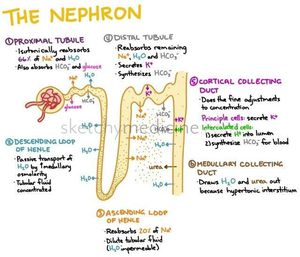 THE NEPHRON
① PROXIMAL TUBULE
• Isotonically reabsorbs
66% of Na⁺ and H₂O
• Also absorbs HCO₃⁻ and
glucose
② DESCENDING LOOP
OF HENLE
• Passive transport of
H₂O by ↑medullary
osmolarity
• Tubular fluid
concentrated
③ ASCENDING LOOP
OF HENLE
• Reabsorbs 20% of Na⁺
• Dilute tubular fluid
(H₂O impermeable)
④ DISTAL TUBULE
• Reabsorbs remaining
Na⁺, H₂O, and HCO₃⁻
• Secretes K⁺
• Synthesizes HCO₃⁻
⑤ CORTICAL COLLECTING
DUCT
• Does the fine adjustments
to concentration
Principle cells: secrete K⁺
Intercalated cells:
1) secrete H⁺ into lumen
2) synthesize HCO₃⁻ for blood
⑥ MEDULLARY COLLECTING
DUCT
• Draws H₂O and urea out
because hypertonic interstitium
glucose
Na⁺
H₂O
HCO₃⁻
H₂O
H₂O
Na⁺
Na⁺
Na⁺
H₂O
HCO₃⁻
K⁺
K⁺
H⁺
urea
H₂O
H₂O
sketchymedicine